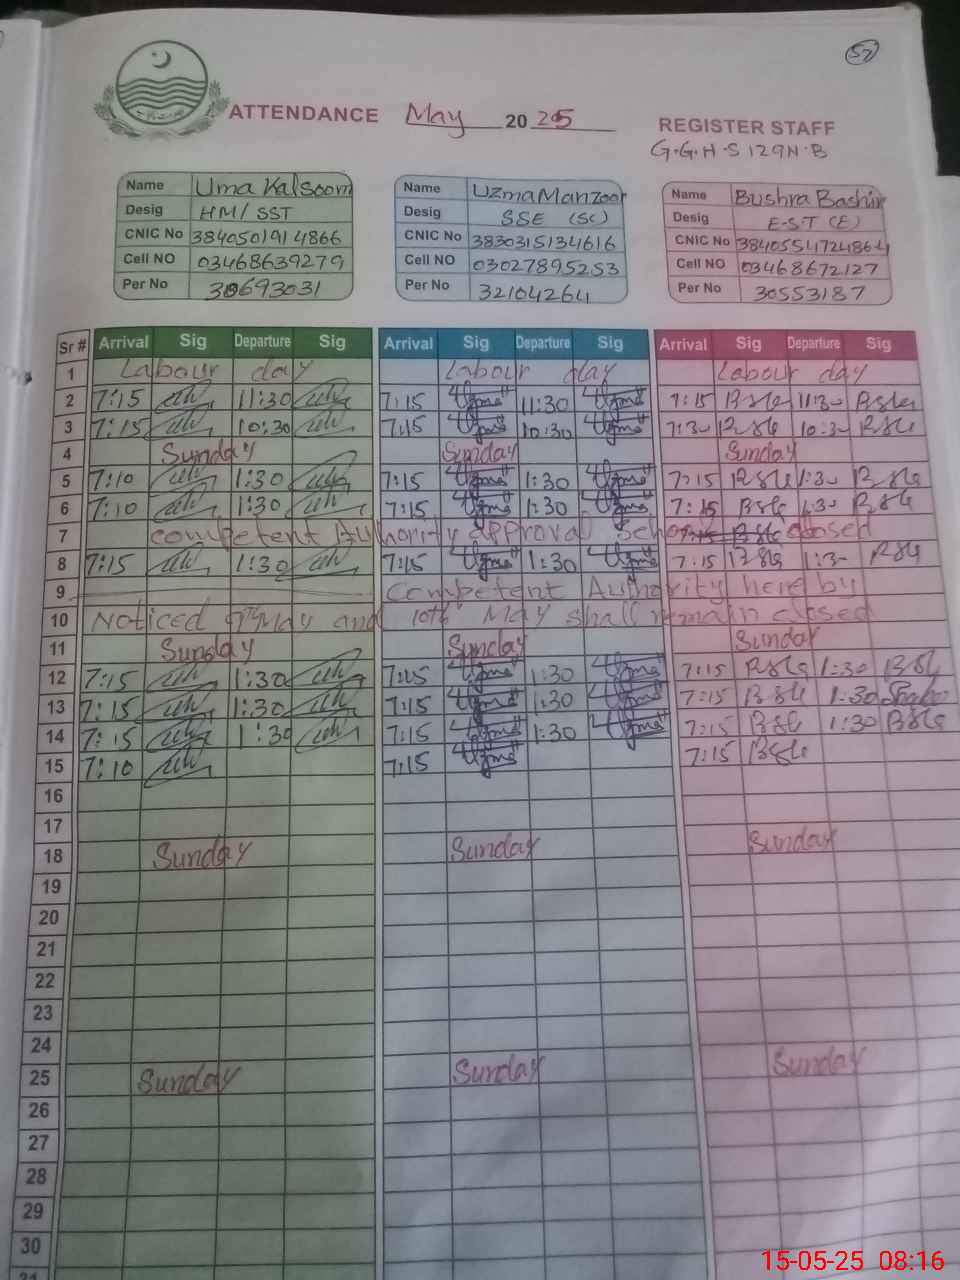 57
ATTENDANCE May 2025 REGISTER STAFF
G.G.H.S 129N.B
Name Uma Kalsoom
Desig HM/SST
CNIC No 3840501914866
Cell NO 03468639279
Per No 30693031
Name Uzma Manzoor
Desig SSE (SC)
CNIC No 3830315134616
Cell NO 03027895253
Per No 32104264
Name Bushra Bashir
Desig E.S.T (E)
CNIC No 3840554724864
Cell NO 03468672127
Per No 30553187
Sr # Arrival Sig Departure Sig Arrival Sig Departure Sig Arrival Sig Departure Sig
1 Labour day Labour day Labour day
2 7:15 11:30 7:15 11:30 7:15 11:30
3 7:15 10:30 7:15 10:30 7:30 10:30
4 Sunday Sunday Sunday
5 7:10 1:30 7:15 1:30 7:15 1:30
6 7:10 1:30 7:15 1:30 7:15 1:30
7 competent Authority approval School closed
8 7:15 1:30 7:15 1:30 7:15 1:30
9 Competent Authority here by
10 Noticed 9th May and 10th May shall remain closed
11 Sunday Sunday Sunday
12 7:15 1:30 7:15 1:30 7:15 1:30
13 7:15 1:30 7:15 1:30 7:15 1:30
14 7:15 1:30 7:15 1:30 7:15 1:30
15 7:10 7:15 7:15
16
17
18 Sunday Sunday Sunday
19
20
21
22
23
24
25 Sunday Sunday Sunday
26
27
28
29
30
31
15-05-25 08:16